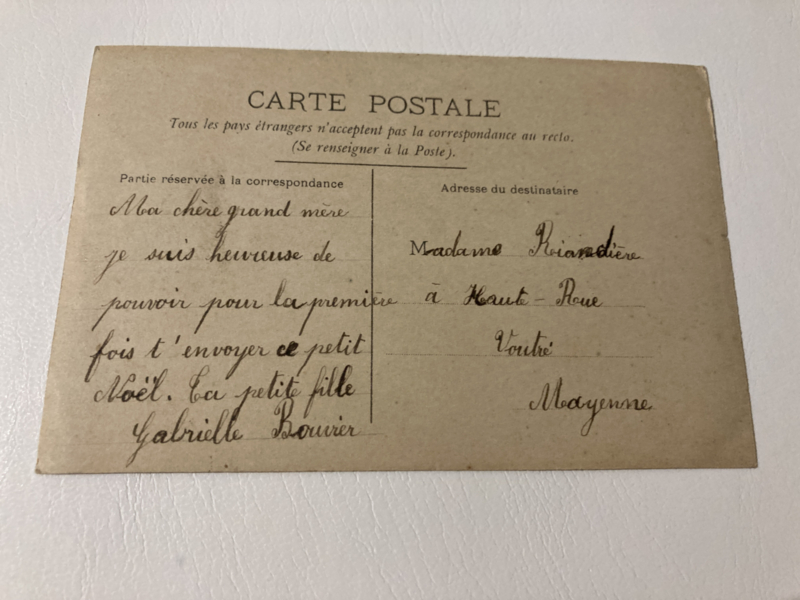 CARTE POSTALE
Tous les pays étrangers n'acceptent pas la correspondance au recto.
(Se renseigner à la Poste).
Partie réservée à la correspondance
Ma chère grand mère
je suis heureuse de
pouvoir pour la première
fois t'envoyer ce petit
Noël. Ta petite fille
Gabrielle Bouvier
Adresse du destinataire
Madame Roiandière
à Haute-Rue
Voutré
Mayenne